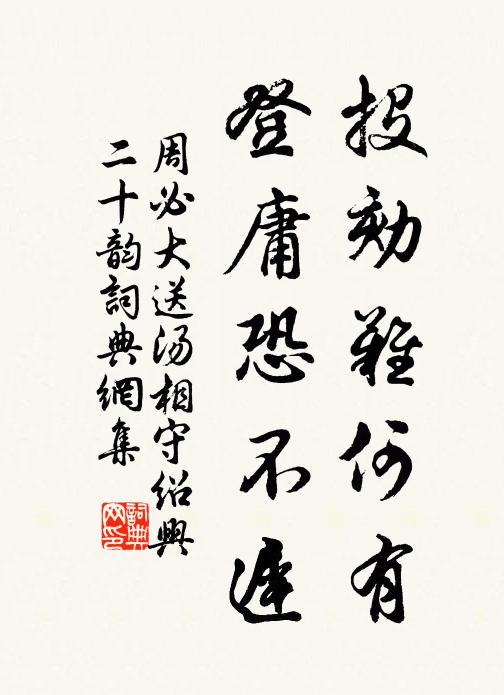 投劾難何有
登庸恐不遲
周必大送汤相守绍興
二十韵詞典網集
詞典网印